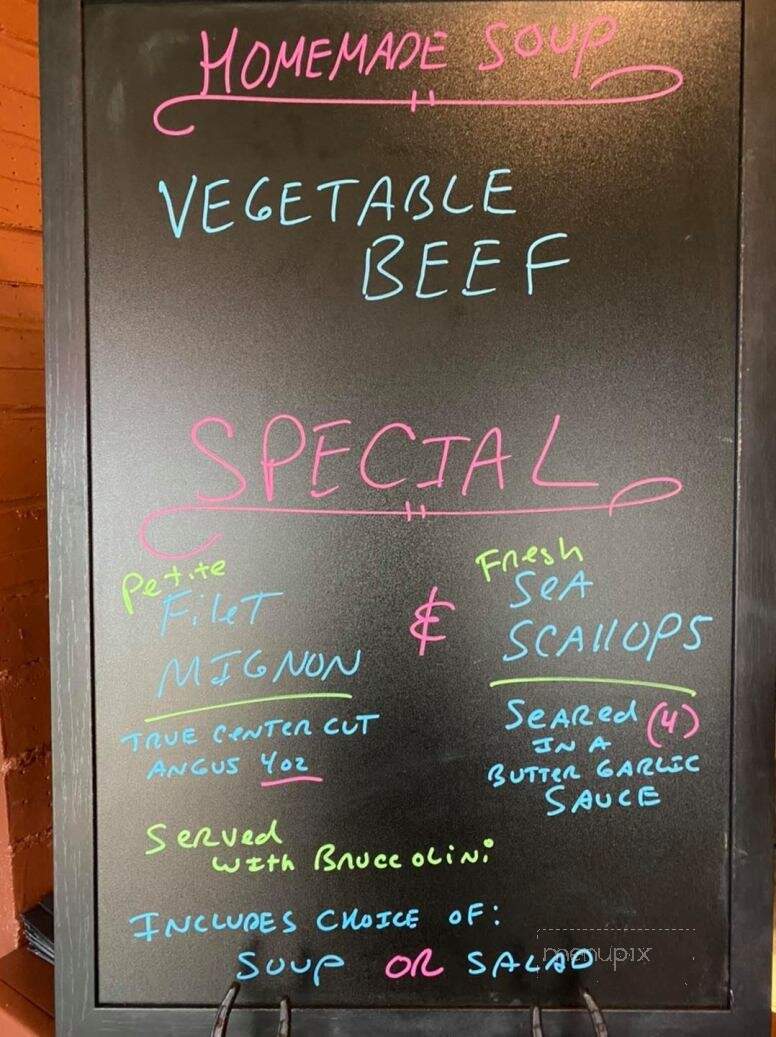 HOMEMADE SOUP
VEGETABLE
BEEF
SPECIAL
Petite
FileT
MIGNON
TRUE CENTER CUT
ANGUS 4oz
&
Fresh
SeA
SCAllOPS
SeARed (4)
IN A
BUTTER GARLIC
SAUCE
Served
WITH BRUCCOLiNi
INCLUDES CHOICE OF:
SOUP OR SALAD
menupix